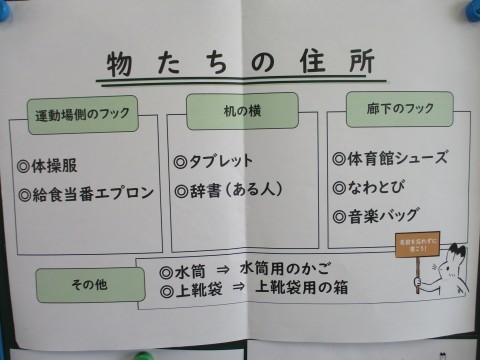 物たちの住所
運動場側のフック
◎体操服
◎給食当番エプロン
机の横
◎タブレット
◎辞書(ある人)
廊下のフック
◎体育館シューズ
◎なわとび
◎音楽バッグ
その他
◎水筒 ⇒ 水筒用のかご
◎上靴袋 ⇒ 上靴袋用の箱
名前を忘れずに
書こう!